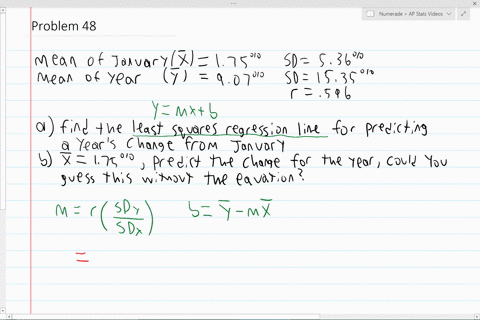 Numerade > AP Stats Videos
Problem 48
mean of January (X̄) = 1.75% SD = 5.36%
mean of year (Ȳ) = 9.07% SD = 15.35%
r = .596
Y = mx + b
a) find the least squares regression line for predicting
a year's change from January
b) X̄ = 1.75%, predict the change for the year, could you
guess this without the equation?
m = r(SDy/SDx) b = Ȳ - mX̄
=